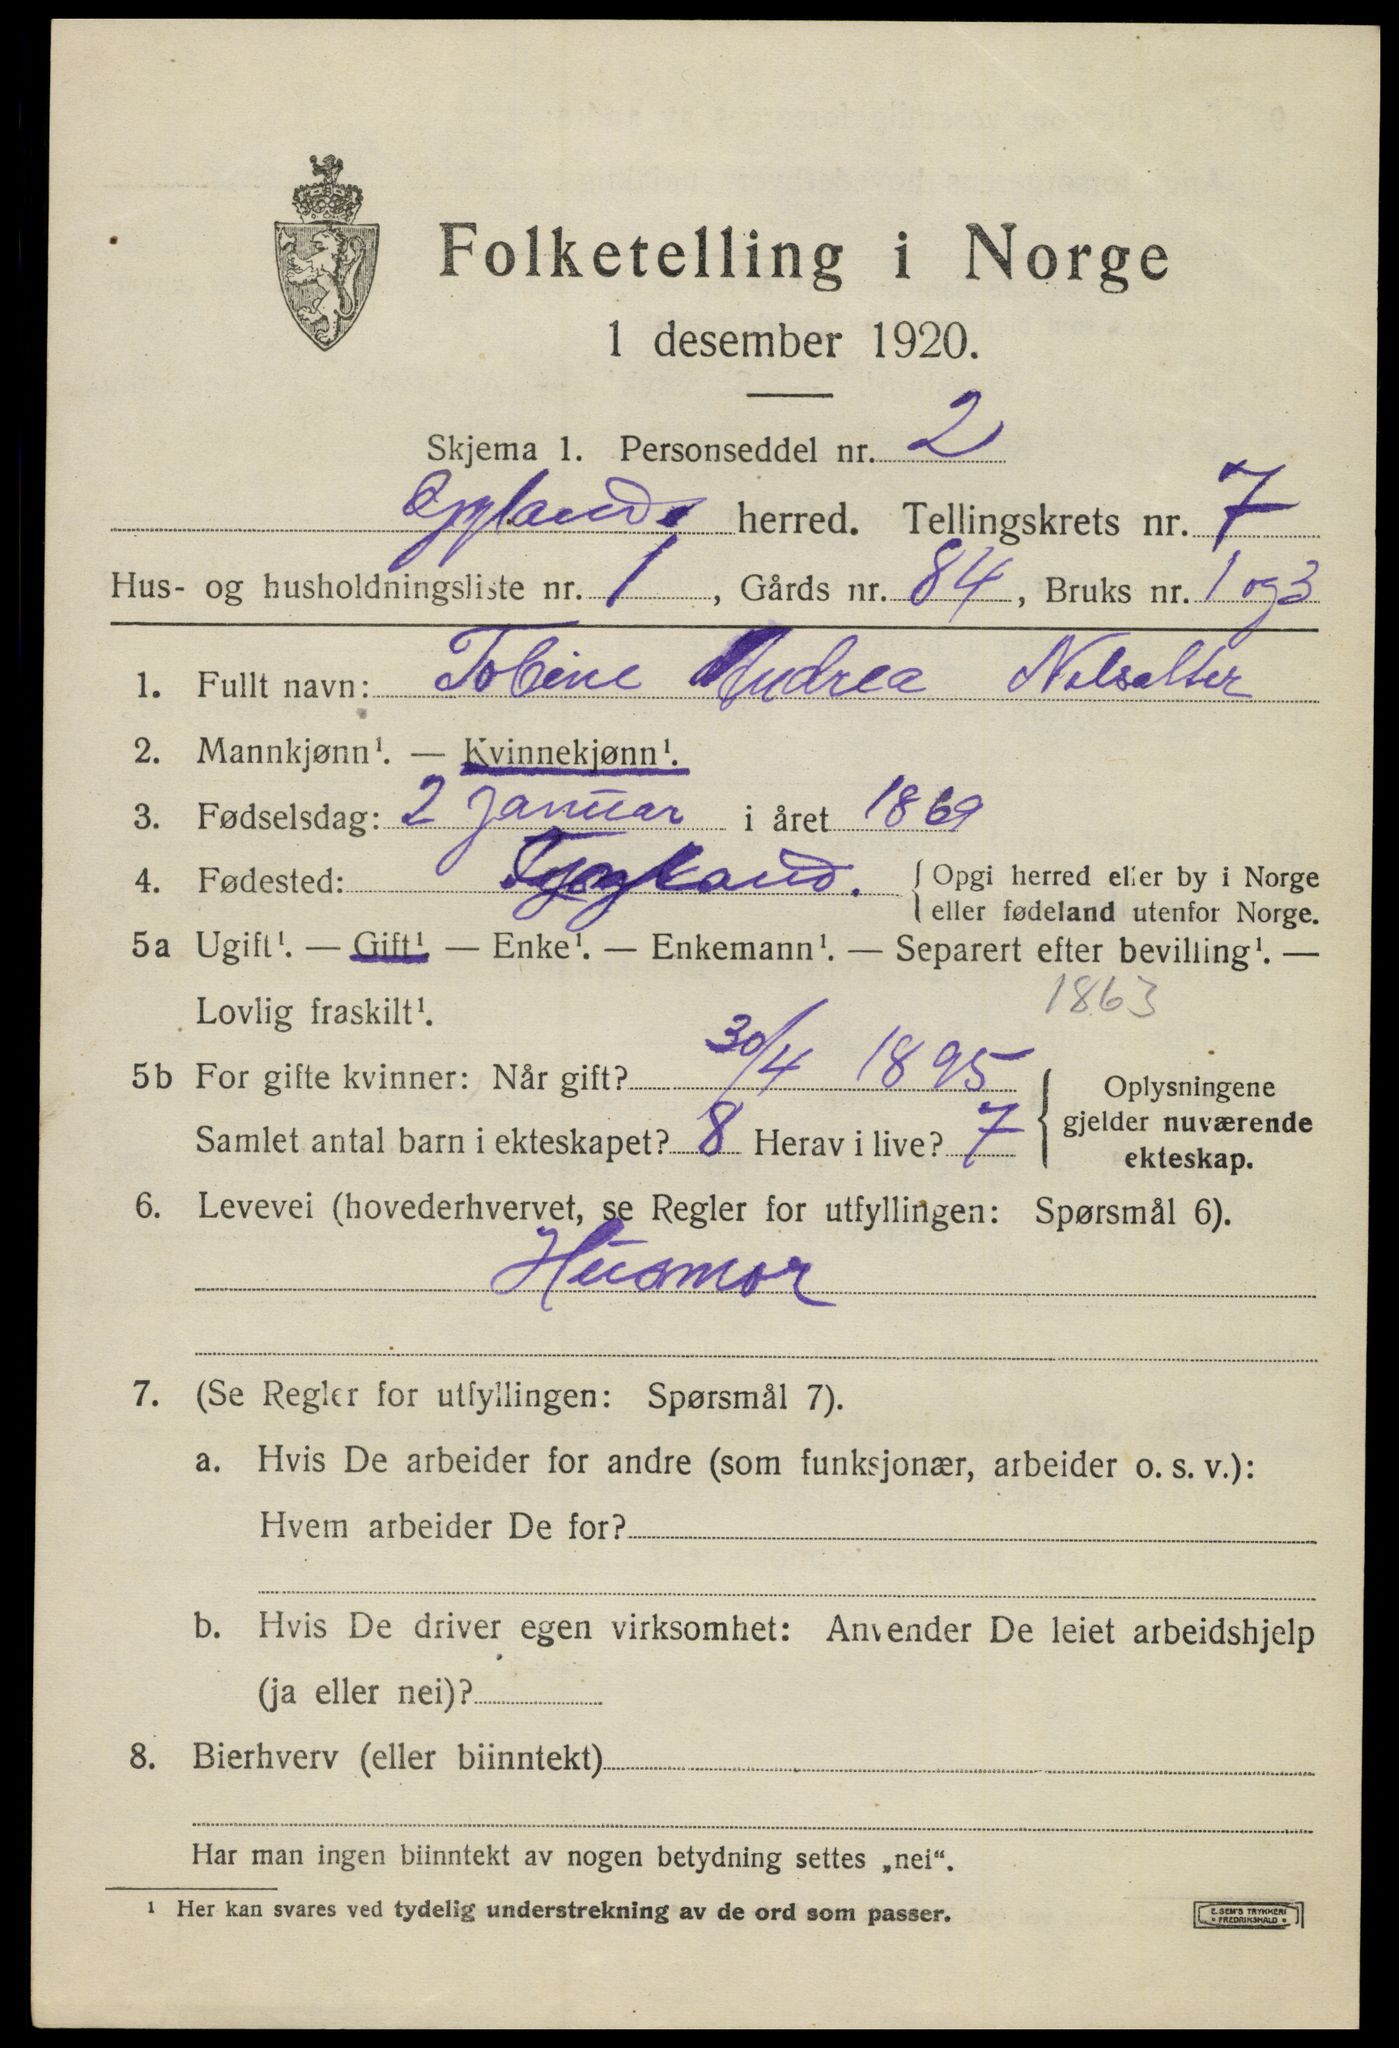 Folketelling i Norge
1 desember 1920.
Skjema 1. Personseddel nr. 2
herred. Tellingskrets nr. 7
Hus- og husholdningsliste nr. 1, Gårds nr. 84, Bruks nr. 1 og 3
1. Fullt navn: Tobine Andrea
2. Mannkjønn¹. — Kvinnekjønn¹.
3. Fødselsdag: 2 januar i året 1869
4. Fødested: { Opgi herred eller by i Norge
{ eller fødeland utenfor Norge.
5a Ugift¹. — Gift¹. — Enke¹. — Enkemann¹. — Separert efter bevilling¹. —
Lovlig fraskilt¹. 1863
5b For gifte kvinner: Når gift? 30/4 1895 { Oplysningene
gjelder nuværende
Samlet antal barn i ekteskapet? 8 Herav i live? 7 ekteskap.
6. Levevei (hovederhvervet, se Regler for utfyllingen: Spørsmål 6).
Husmor
7. (Se Regler for utfyllingen: Spørsmål 7).
a. Hvis De arbeider for andre (som funksjonær, arbeider o. s. v.):
Hvem arbeider De for?
b. Hvis De driver egen virksomhet: Anvender De leiet arbeidshjelp
(ja eller nei)?
8. Bierhverv (eller biinntekt)
Har man ingen biinntekt av nogen betydning settes „nei“.
¹ Her kan svares ved tydelig understrekning av de ord som passer.
E. SEM'S TRYKKERI
FREDRIKSHALD